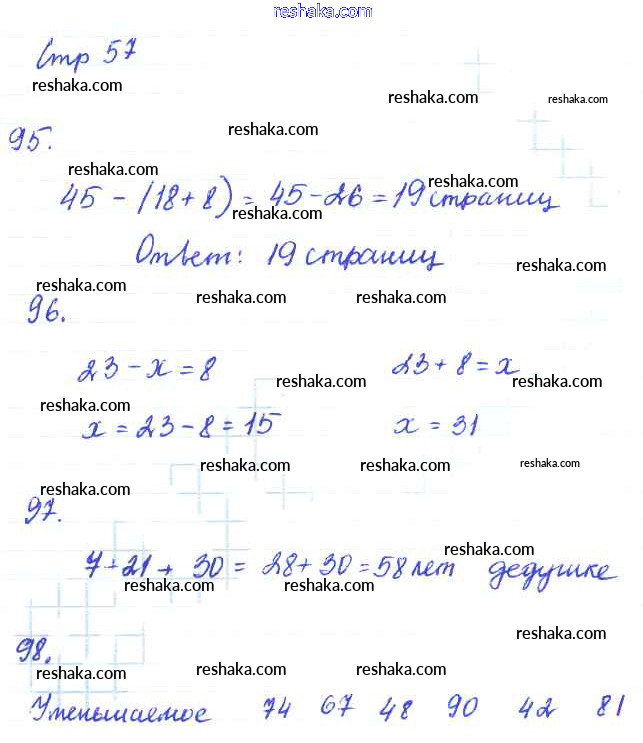 reshaka.com
Стр 57
reshaka.com
reshaka.com reshaka.com
reshaka.com
95.
reshaka.com
reshaka.com
45 - (18 + 8) = 45 - 26 = 19 страниц
reshaka.com
Ответ: 19 страниц
reshaka.com
reshaka.com
reshaka.com reshaka.com
96.
23 - x = 8 23 + 8 = x
reshaka.com reshaka.com
reshaka.com
x = 23 - 8 = 15 x = 31
reshaka.com reshaka.com reshaka.com
reshaka.com
97.
reshaka.com
7 + 21 + 30 = 28 + 30 = 58 лет дедушке
reshaka.com reshaka.com
reshaka.com
98.
reshaka.com reshaka.com reshaka.com
Уменьшаемое 74 67 48 90 42 81